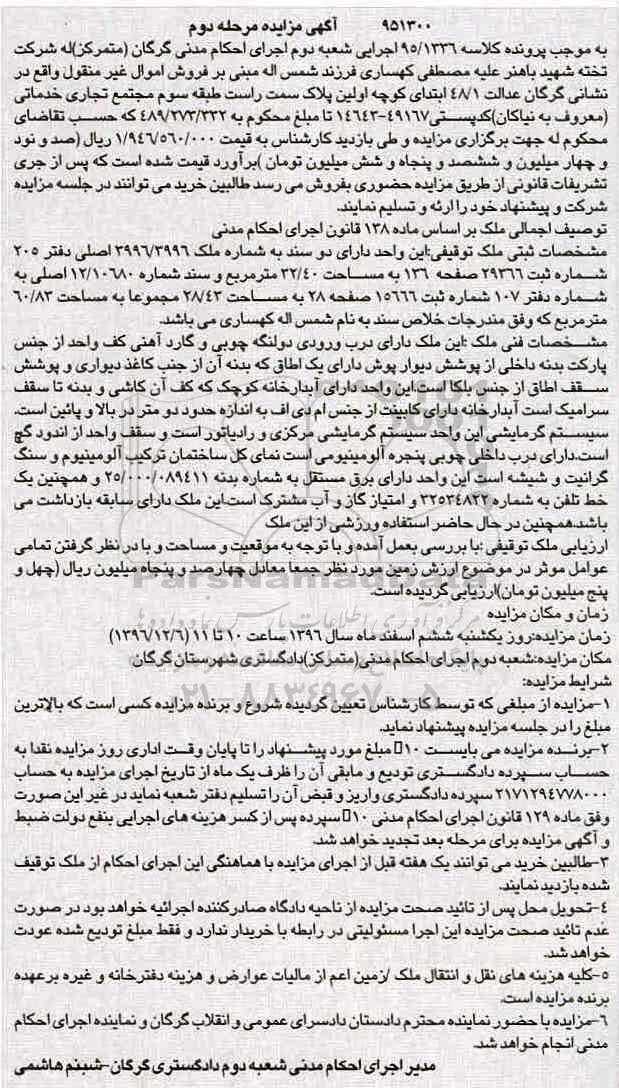 ۹۵۱۳۰۰ آگهی مزایده مرحله دوم
به موجب پرونده کلاسه ۹۵/۱۳۳۶ اجرایی شعبه دوم اجرای احکام مدنی گرگان (متمرکز)له شرکت
تخته شهید باهنر علیه مصطفی کهساری فرزند شمس اله مبنی بر فروش اموال غیر منقول واقع در
نشانی گرگان عدالت ۴۸/۱ ابتدای کوچه اولین پلاک سمت راست طبقه سوم مجتمع تجاری خدماتی
(معروف به نیاکان)کدپستی۴۹۱۶۷-۱۴۶۴۳ تا مبلغ محکوم به ۴۸۹/۲۷۳/۳۳۲ که حسب تقاضای
محکوم له جهت برگزاری مزایده و طی بازدید کارشناس به قیمت ۱/۹۴۶/۵۶۰/۰۰۰ ریال (صد و نود
و چهار میلیون و ششصد و پنجاه و شش میلیون تومان )برآورد قیمت شده است که پس از جری
تشریفات قانونی از طریق مزایده حضوری بفروش می رسد طالبین خرید می توانند در جلسه مزایده
شرکت و پیشنهاد خود را ارئه و تسلیم نمایند.
توصیف اجمالی ملک بر اساس ماده ۱۳۸ قانون اجرای احکام مدنی
مشخصات ثبتی ملک توقیفی:این واحد دارای دو سند به شماره ملک ۳۹۹۶/۳۹۹۶ اصلی دفتر ۲۰۵
شماره ثبت ۲۹۳۶۶ صفحه ۱۳۶ به مساحت ۳۲/۴۰ مترمربع و سند شماره ۱۲/۱۰۶۸۰ اصلی به
شماره دفتر ۱۰۷ شماره ثبت ۱۵۶۶۶ صفحه ۲۸ به مساحت ۲۸/۴۳ مجموعا به مساحت ۶۰/۸۳
مترمربع که وفق مندرجات خلاص سند به نام شمس اله کهساری می باشد.
مشخصات فنی ملک :این ملک دارای درب ورودی دولنگه چوبی و گارد آهنی کف واحد از جنس
پارکت بدنه داخلی از پوشش دیوار پوش دارای یک اطاق که بدنه آن از جنب کاغذ دیواری و پوشش
سقف اطاق از جنس بلکا است.این واحد دارای آبدارخانه کوچک که کف آن کاشی و بدنه تا سقف
سرامیک است آبدارخانه دارای کابینت از جنس ام دی اف به اندازه حدود دو متر در بالا و پائین است.
سیستم گرمایشی این واحد سیستم گرمایشی مرکزی و رادیاتور است و سقف واحد از اندود گچ
است.دارای درب داخلی چوبی پنجره آلومینیومی است نمای کل ساختمان ترکیب آلومینیوم و سنگ
گرانیت و شیشه است این واحد دارای برق مستقل به شماره بدنه ۲۵/۰۰۰/۰۸۹۴۱۱ و همچنین یک
خط تلفن به شماره ۳۲۵۳۴۸۲۲ و امتیاز گاز و آب مشترک است.این ملک دارای سابقه بازداشت می
باشد.همچنین در حال حاضر استفاده ورزشی از این ملک
ارزیابی ملک توقیفی :با بررسی بعمل آمده و با توجه به موقعیت و مساحت و با در نظر گرفتن تمامی
عوامل موثر در موضوع ارزش زمین مورد نظر جمعا معادل چهارصد و پنجاه میلیون ریال (چهل و
پنج میلیون تومان)ارزیابی گردیده است.
زمان و مکان مزایده
زمان مزایده:روز یکشنبه ششم اسفند ماه سال ۱۳۹۶ ساعت ۱۰ تا ۱۱ (۱۳۹۶/۱۲/۶)
مکان مزایده:شعبه دوم اجرای احکام مدنی(متمرکز)دادگستری شهرستان گرگان
شرایط مزایده:
۱-مزایده از مبلغی که توسط کارشناس تعیین گردیده شروع و برنده مزایده کسی است که بالاترین
مبلغ را در جلسه مزایده پیشنهاد نماید.
۲-برنده مزایده می بایست ۱۰ مبلغ مورد پیشنهاد را تا پایان وقت اداری روز مزایده نقدا به
حساب سپرده دادگستری تودیع و مابقی آن را ظرف یک ماه از تاریخ اجرای مزایده به حساب
۲۱۷۱۲۹۴۷۷۸۰۰۰ سپرده دادگستری واریز و قبض آن را تسلیم دفتر شعبه نماید در غیر این صورت
وفق ماده ۱۲۹ قانون اجرای احکام مدنی ۱۰ سپرده پس از کسر هزینه های اجرایی بنفع دولت ضبط
و آگهی مزایده برای مرحله بعد تجدید خواهد شد.
۳-طالبین خرید می توانند یک هفته قبل از اجرای مزایده با هماهنگی این اجرای احکام از ملک توقیف
شده بازدید نمایند.
۴-تحویل محل پس از تائید صحت مزایده از ناحیه دادگاه صادرکننده اجرائیه خواهد بود در صورت
عدم تائید صحت مزایده این اجرا مسئولیتی در رابطه با خریدار ندارد و فقط مبلغ تودیع شده عودت
خواهد شد.
۵-کلیه هزینه های نقل و انتقال ملک /زمین اعم از مالیات عوارض و هزینه دفترخانه و غیره برعهده
برنده مزایده است.
۶-مزایده با حضور نماینده محترم دادستان دادسرای عمومی و انقلاب گرگان و نماینده اجرای احکام
مدنی انجام خواهد شد.
مدیر اجرای احکام مدنی شعبه دوم دادگستری گرگان-شبنم هاشمی
ParsNamadData
۰۲۱-۸۸۳۴۹۶۷۰-۵